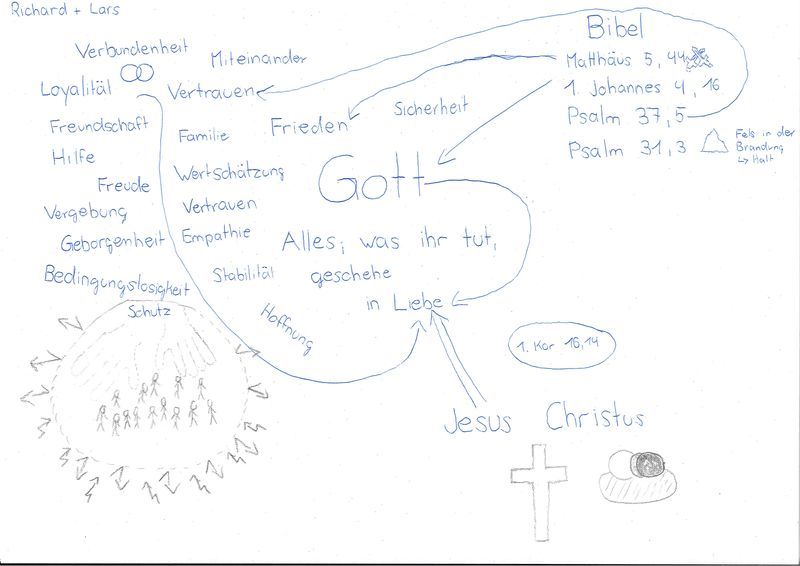 Richard + Lars
Bibel
Matthäus 5, 44
1. Johannes 4, 16
Psalm 37, 5
Psalm 31, 3
Fels in der
Brandung
↳ Halt
Verbundenheit
Miteinander
Loyalität
Vertrauen
Sicherheit
Freundschaft
Familie
Frieden
Hilfe
Wertschätzung
Gott
Freude
Vergebung
Vertrauen
Geborgenheit
Empathie
Alles, was ihr tut,
geschehe
in Liebe
Bedingungslosigkeit
Stabilität
Schutz
Hoffnung
1. Kor 16,14
Jesus Christus